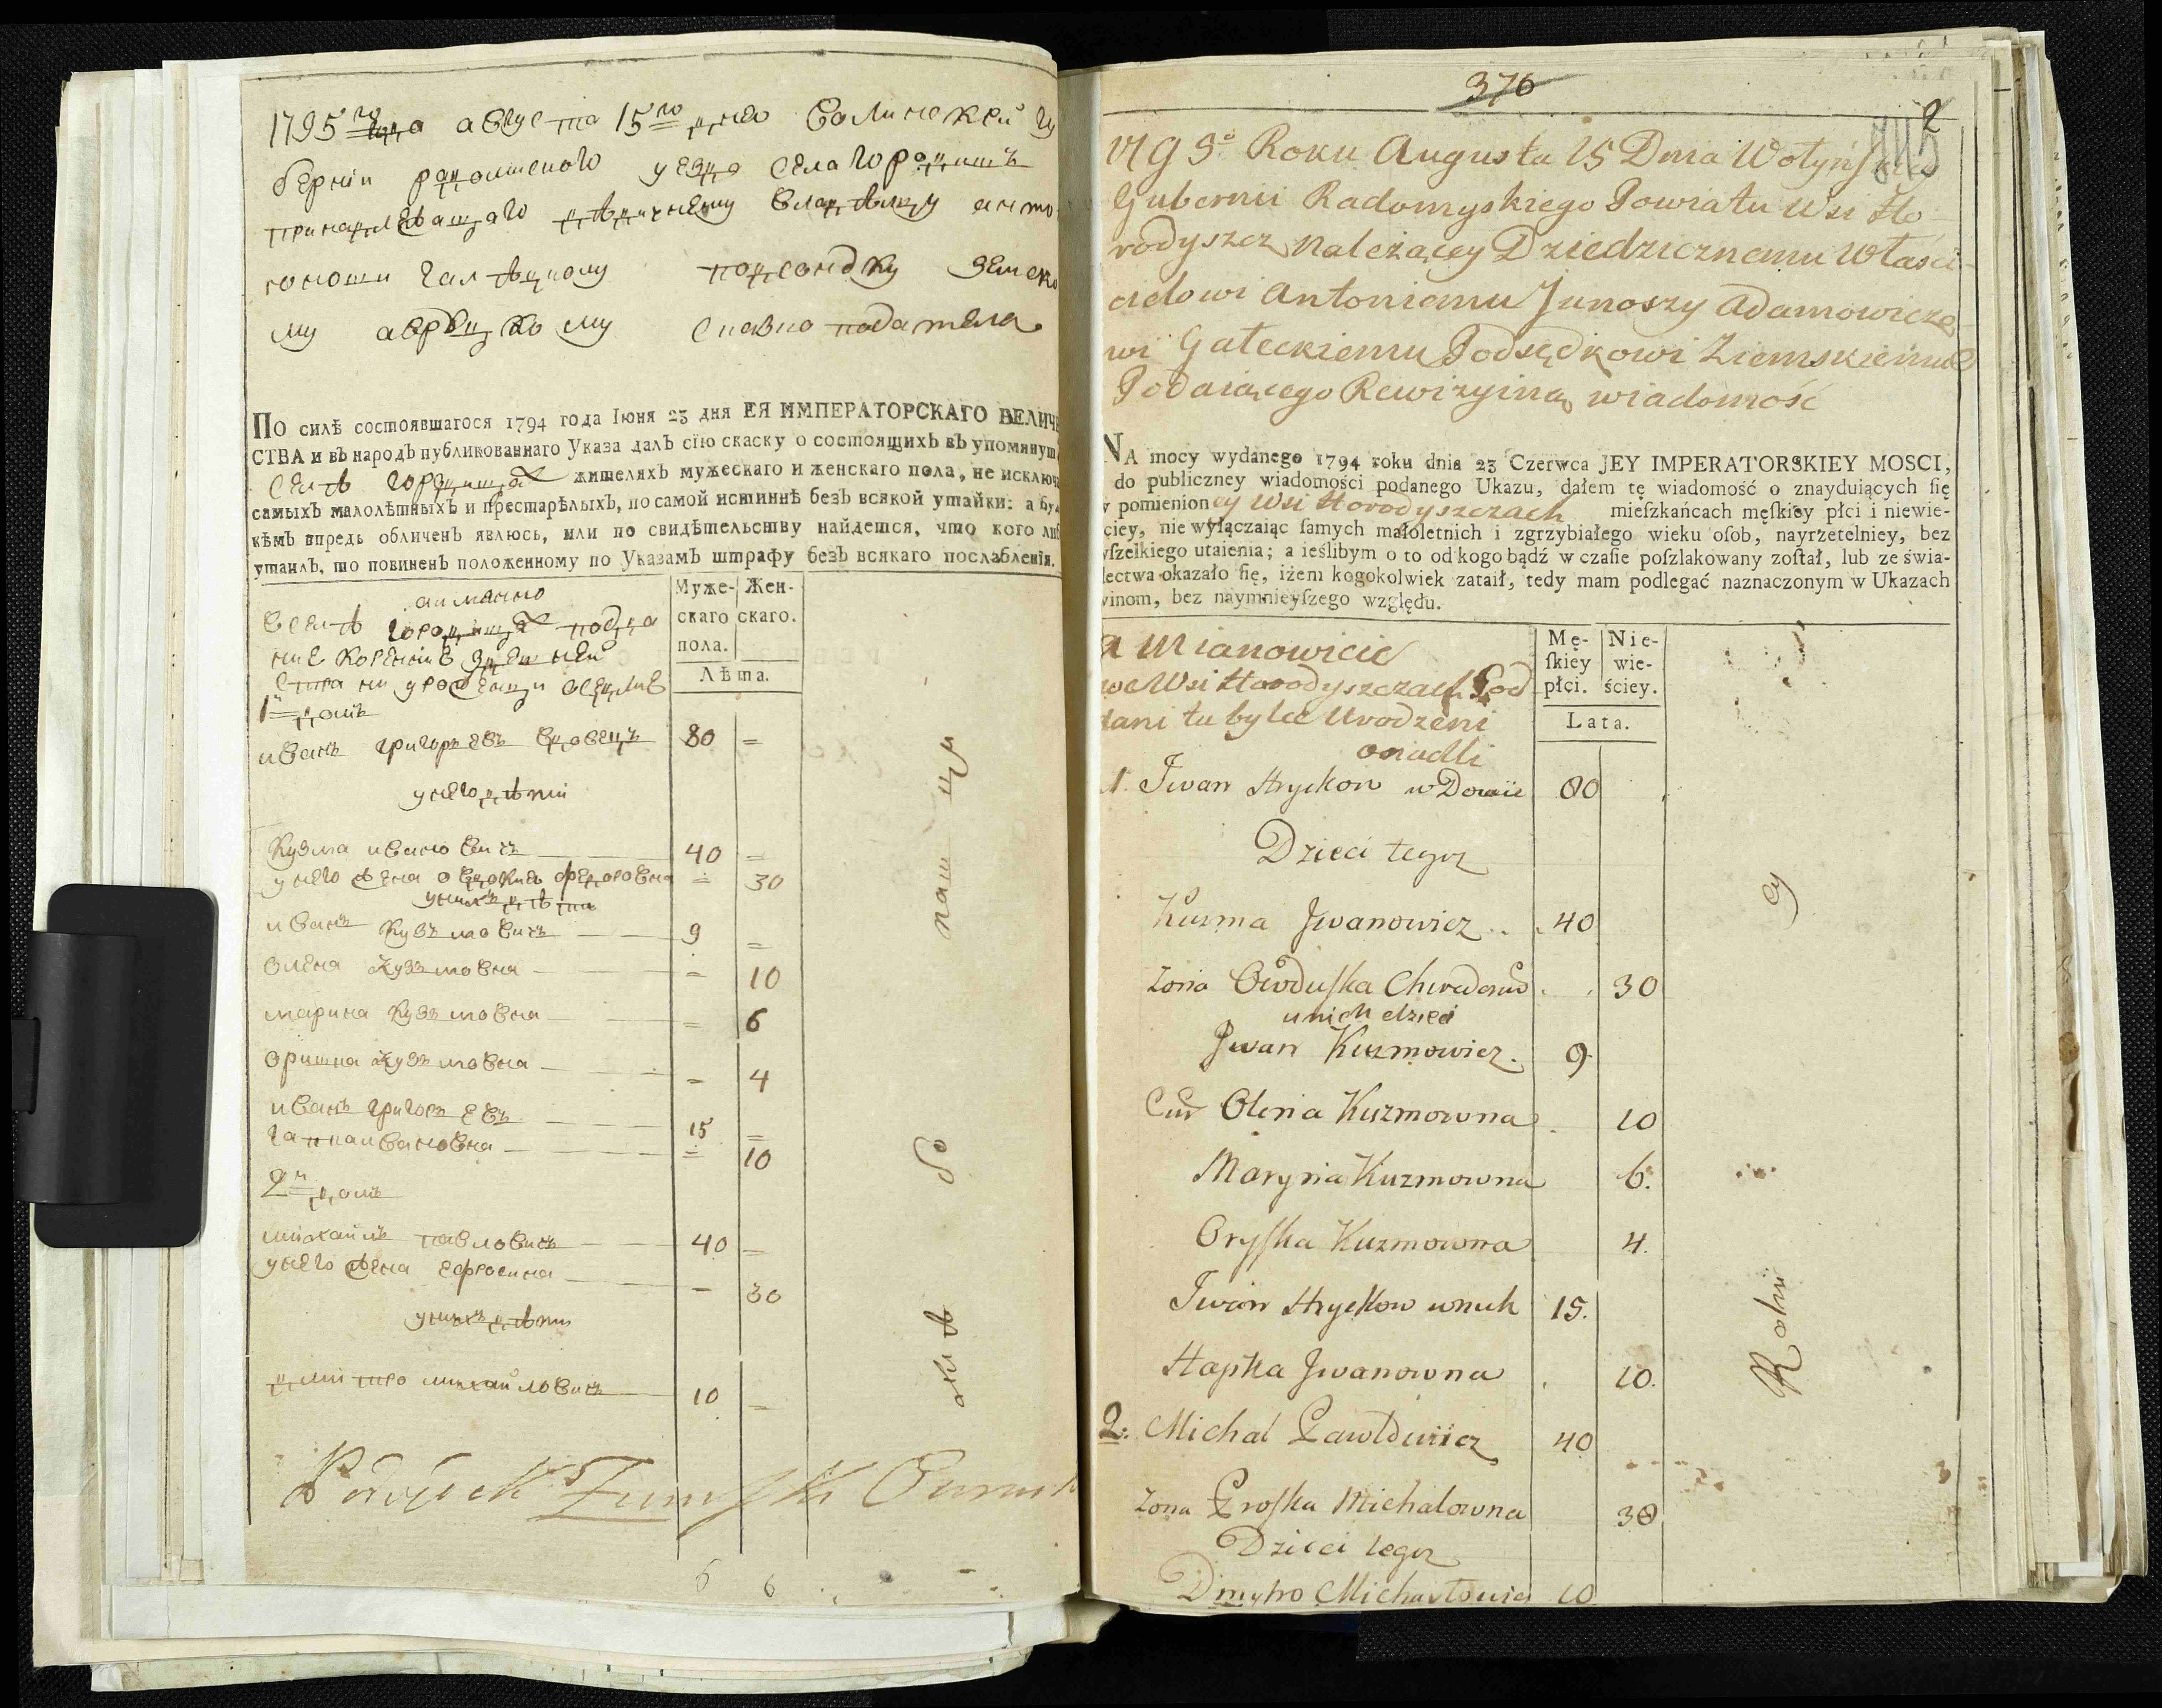 1795го года августа 15го дня Волинскей гу
берніи радомшского уезда села городищъ
принадлежащаго дедичнему владельцу анто
юноши галецкому подсондку земско
му
По силѣ состоявшагося 1794 года Іюня 23 дня ЕЯ ИМПЕРАТОРСКАГО ВЕЛИЧЕ
СТВА и въ народъ публикованнаго Указа далъ сїю скаску о состоящихъ въ упомянут
селѣ городищах жителяхъ мужескаго и женскаго пола, не исключа
самыхъ малолѣтныхъ и престарѣлыхъ, по самой истиннѣ безъ всякой утайки: а бу
кѣмъ впредь обличенъ явлюсь, или по свидѣтельству найдется, что кого либ
утаилъ, то повиненъ положенному по Указамъ штрафу безъ всякаго послабленія.
Муже- Жен-
скаго скаго.
пола.
Лѣта.
а имянно
в селѣ городищах подда
ние коренніе здешней
1й домъ
иванъ григорьевъ вдовецъ 80 =
у него дѣти
кузма ивановичъ 40 =
у него жена овдокия федоровна = 30
у нихъ дѣти
иванъ кузьмовичъ 9 =
олена кузьмовна - 10
марина кузьмовна = 6
оришка кузьмовна - 4
иванъ григорьевъ 15 =
гапка ивановна = 10
2й домъ
михайлъ павловичъ 40 =
у него жена ефросина - 30
у нихъ дѣти
дмитро михайловичъ 10 =
пашцы
Podsędek Ziemski
6 6
376
2
1795º Roku Augusta 15 Dnia Wołyńskiey
Gubernii Radomyskiego Powiatu Wsi Ho-
rodyszcz Należącey Dziedzicznemu Właści-
cielowi Antoniemu Junoszy Adamowiczo-
wi Gałeckiemu Podsędkowi Ziemskiemu
Podaiącego Rewizyiną wiadomość
NA mocy wydanego 1794 roku dnia 23 Czerwca JEY IMPERATORSKIEY MOSCI,
do publiczney wiadomości podanego Ukazu, dałem tę wiadomość o znayduiących ſię
w pomienioney Wsi Horodyszczach mieſzkańcach męſkiey płci i niewie-
ściey, nie wyłączaiąc ſamych małoletnich i zgrzybiałego wieku oſob, nayrzetelniey, bez
wſzelkiego utaienia; a ieślibym o to od kogo bądź w czaſie poſzlakowany zoſtał, lub ze świa-
dectwa okazało ſię, iżem kogokolwiek zataił, tedy mam podlegać naznaczonym w Ukazach
winom, bez naymnieyſzego względu.
Mę- Nie-
ſkiey wie-
płci. ściey.
Lata.
a Mianowicie
we Wsi Horodyszczach Pod
dani tu bylce Urodzeni
osiadli
1. Iwan Hryckow w Domie 80
Dzieci tegoz
Kuzma Jwanowicz 40
Zona Owduſka 30
u nich dzieci
Jwan Kuzmowicz. 9.
Cur Olena Kuzmowna 10
Maryna Kuzmowna 6.
Oryſka Kuzmowna 4.
Iwan Hryckow wnuk 15.
Hapka Jwanowna 10.
2. Michal Pawłowicz 40
Zona Proſka Michalowna 30
Dzieci tegoz
Dmytro Michayłowicz 10
Rolni
cy